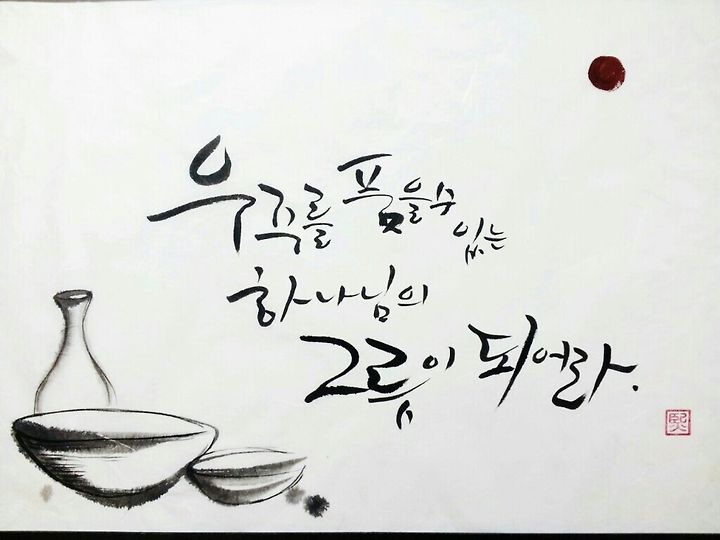 우주를 품을 수 있는
하나님의
그릇이 되어라.
熙